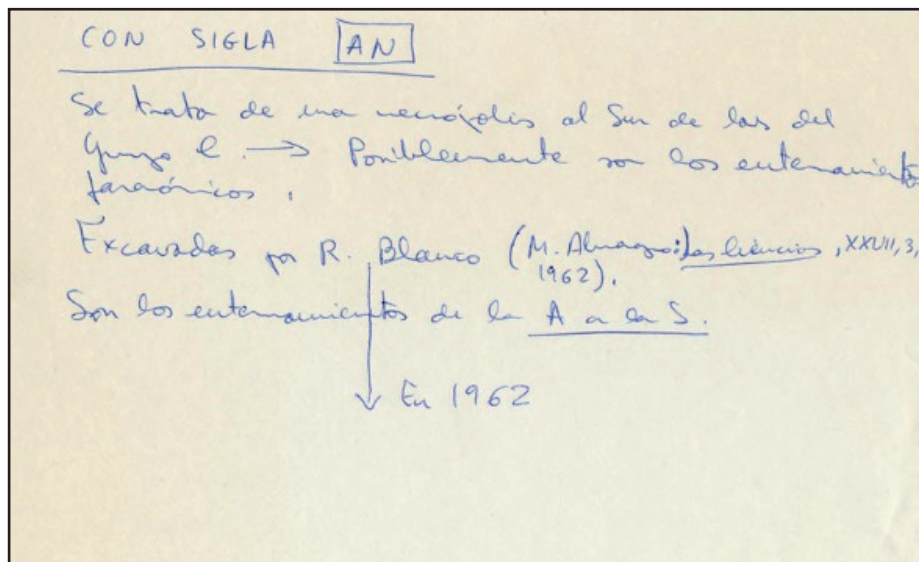 CON SIGLA AN
Se trata de una necrópolis al Sur de las del
Grupo C. → Posiblemente son los enterramientos
faraónicos.
Excavadas por R. Blanco (M. Almagro: Las Ciencias, XXVII, 3,
1962).
Son los enterramientos de la A a la S.
En 1962